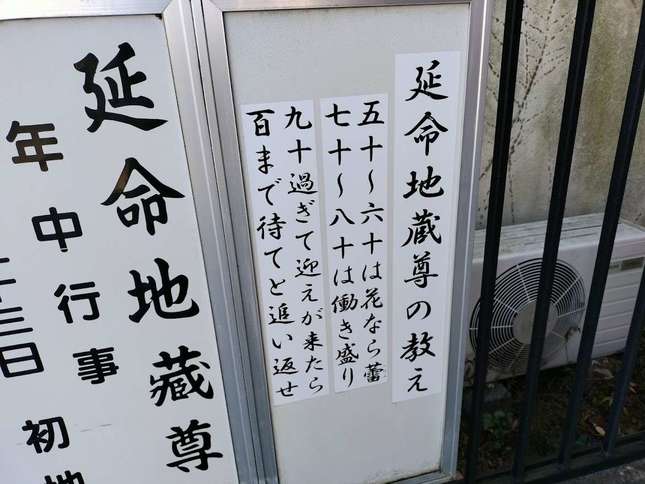 延命地蔵尊の教え
五十〜六十は花なら蕾
七十〜八十は働き盛り
九十過ぎて迎えが来たら
百まで待てと追い返せ
延命地蔵尊
年中行事 初地
十三日